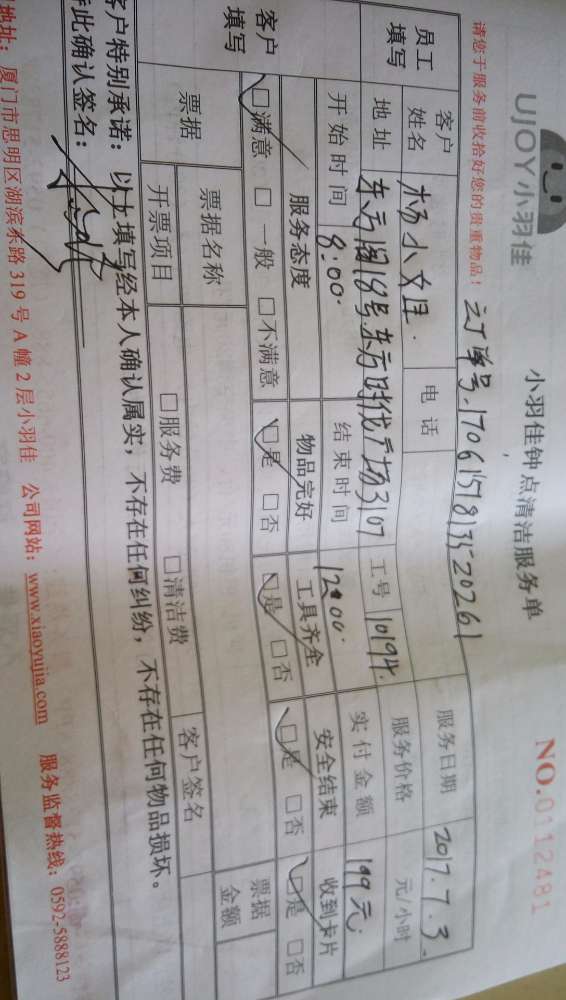 UJOY小羽佳
小羽佳钟点清洁服务单
NO.0112481
请您于服务前收拾好您的贵重物品！
订单号.170615181352026
员工填写
客户姓名
杨小姐.
电话
服务日期
2017.7.3.
地址
东方阁18号东方时代广场3107
工号
10194.
服务价格
元/小时
开始时间
8:00.
结束时间
12:00.
实付金额
199元.
客户填写
服务态度
物品完好
工具齐全
安全结束
收到卡片
□满意 □一般 □不满意
□是 □否
□是 □否
□是 □否
□是 □否
票据
票据名称
票据金额
开票项目
□服务费 □清洁费
客户签名
客户特别承诺：以上填写经本人确认属实，不存在任何纠纷，不存在任何物品损坏。
特此确认签名：
地址：厦门市思明区湖滨东路319号A幢2层小羽佳 公司网站：www.xiaoyujia.com 服务监督热线：0592-5888123